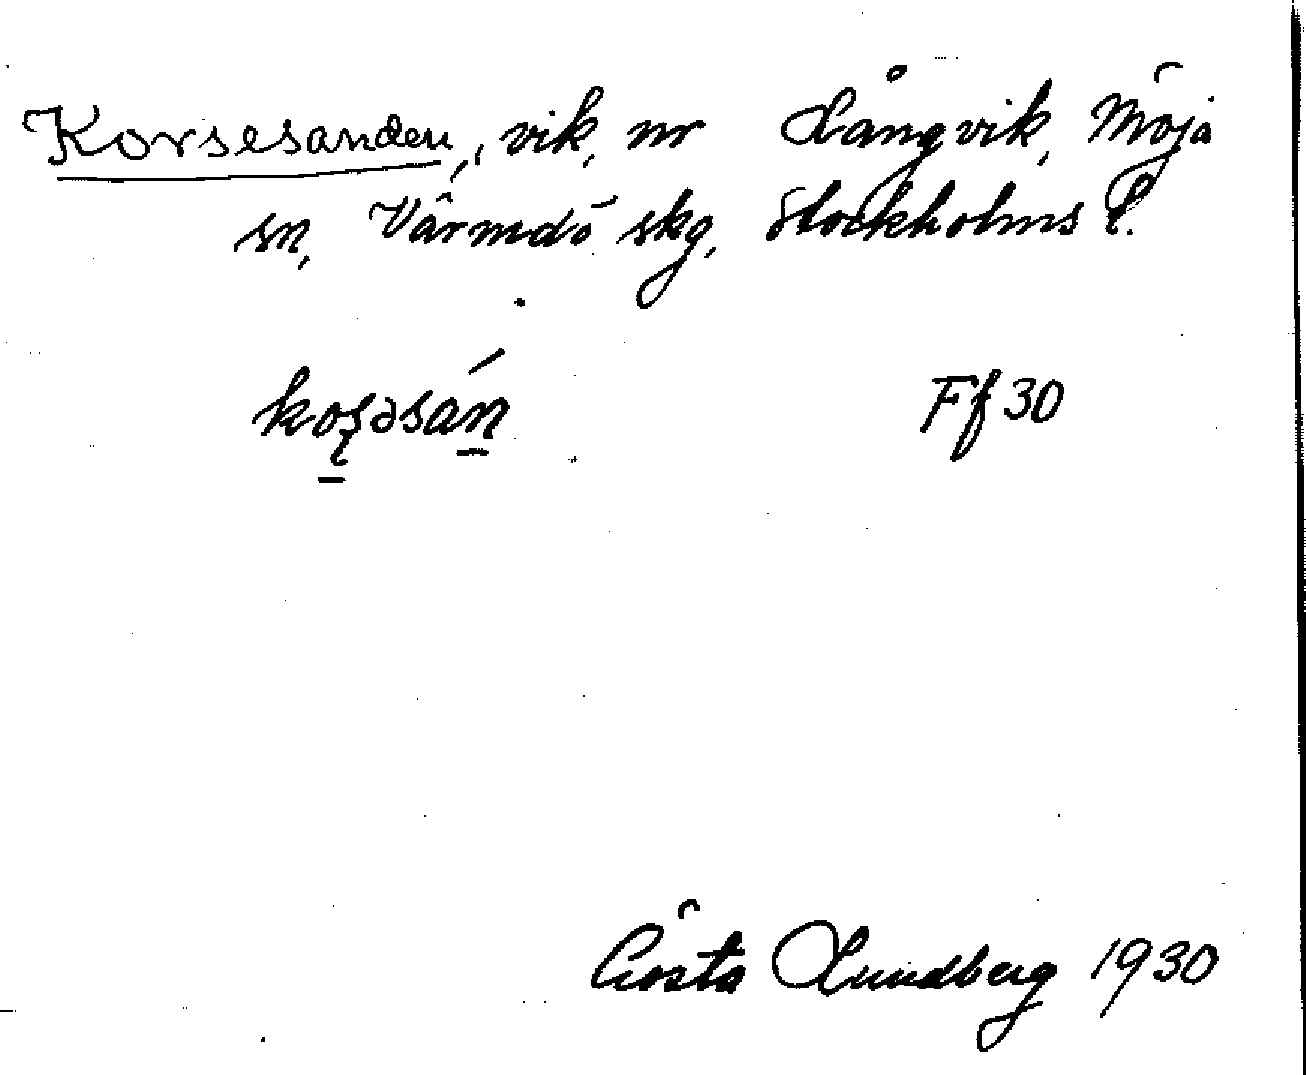 Korsesanden, vik, nr Långvik, Möja
sn, Värmdö skg, Stockholms l.
koʂəsán Ff 30
Gösta Lundberg 1930